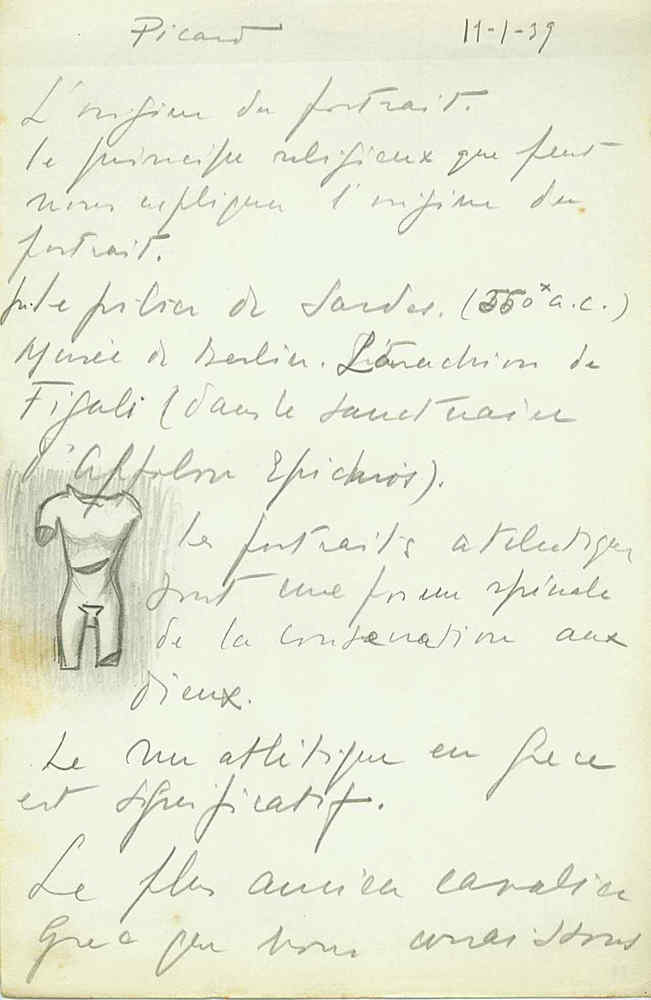 Picard 11-1-39
L'origine du portrait.
le principe religieux que peut
nous expliquer l'origine du
portrait.
pilier de Sardes. (550 a.c.)
Musée de Berlin. de
Figali (dans le sanctuaire
d'Apollon Epicurios).
les portraits
sont une forme
de la aux
dieux.
Le nu athlétique en Grece
est significatif.
Le plus ancien cavalier
Grec que nous conaissons